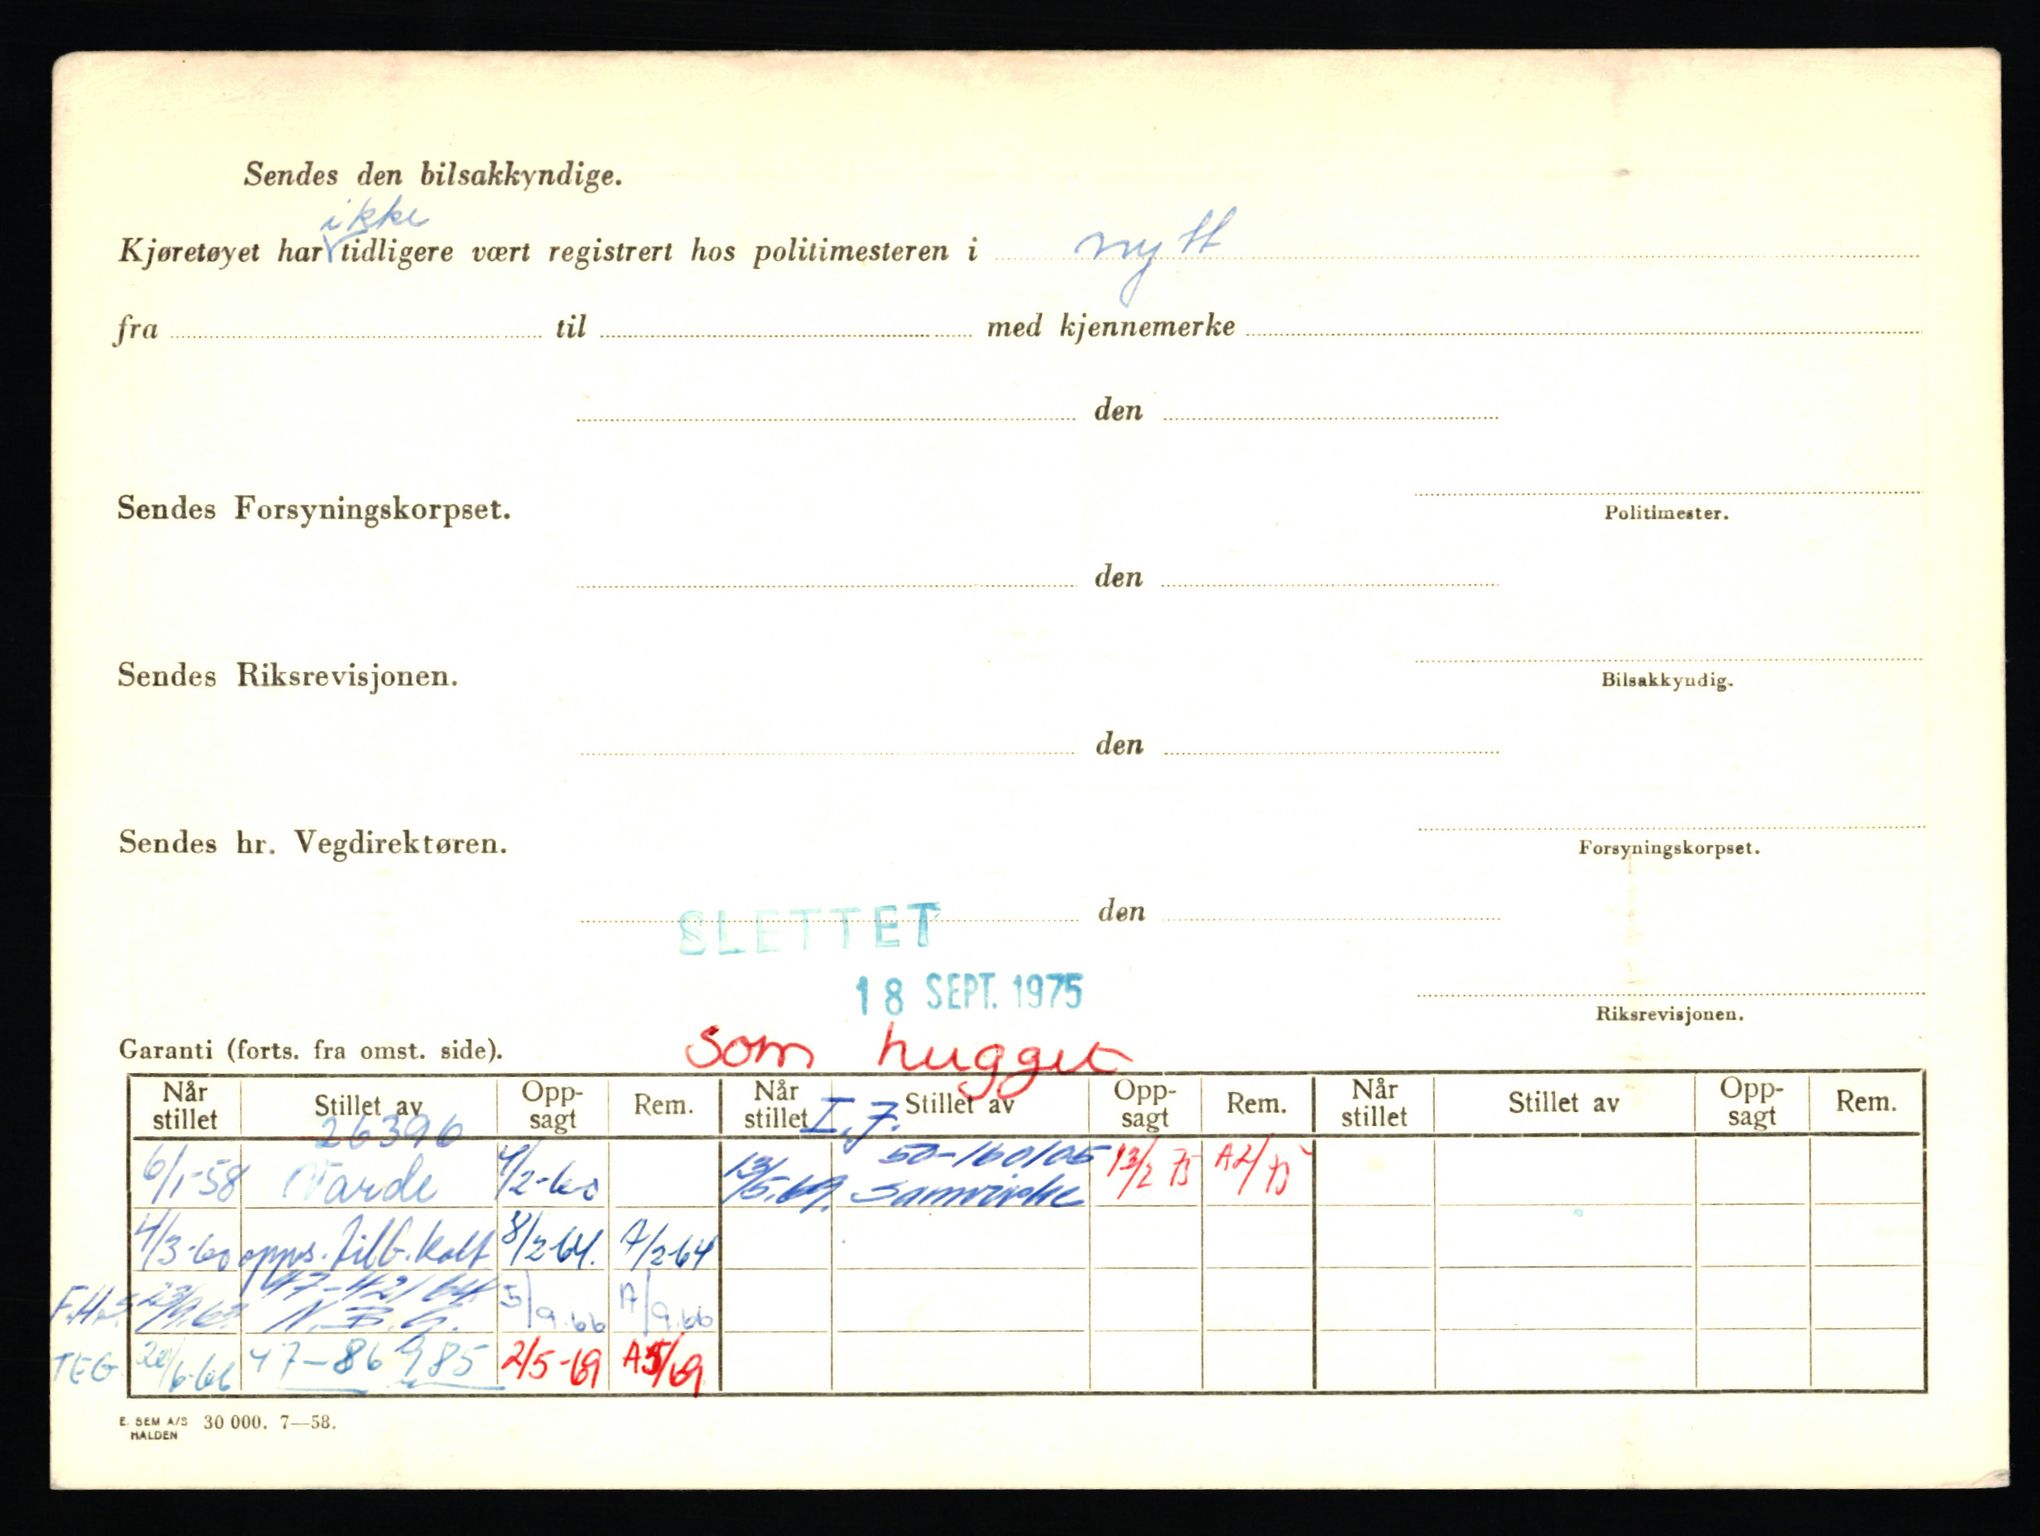 Sendes den bilsakkyndige.
ikke
Kjøretøyet har tidligere vært registrert hos politimesteren i nytt
fra til med kjennemerke
den
Sendes Forsyningskorpset.
Politimester.
den
Sendes Riksrevisjonen.
Bilsakkyndig.
den
Sendes hr. Vegdirektøren.
Forsyningskorpset.
den
SLETTET
18 SEPT. 1975
Riksrevisjonen.
Garanti (forts. fra omst. side).
som hugget
Når stillet Stillet av Oppsagt Rem. Når stillet Stillet av Oppsagt Rem. Når stillet Stillet av Oppsagt Rem.
26396 I.F.
6/1-58 Varde 4/2-60 13/5.69. 50-160105 Samvirke 13/2 75 A2/75
4/3-60 opps. tilb. kalt 8/2-64. A/2-64
F.H.S. N.B.G. 5/9.66 A/9.66
TEG 20/6-66 47-86985 2/5-69 A5/69
E. SEM A/S HALDEN 30 000. 7—58.